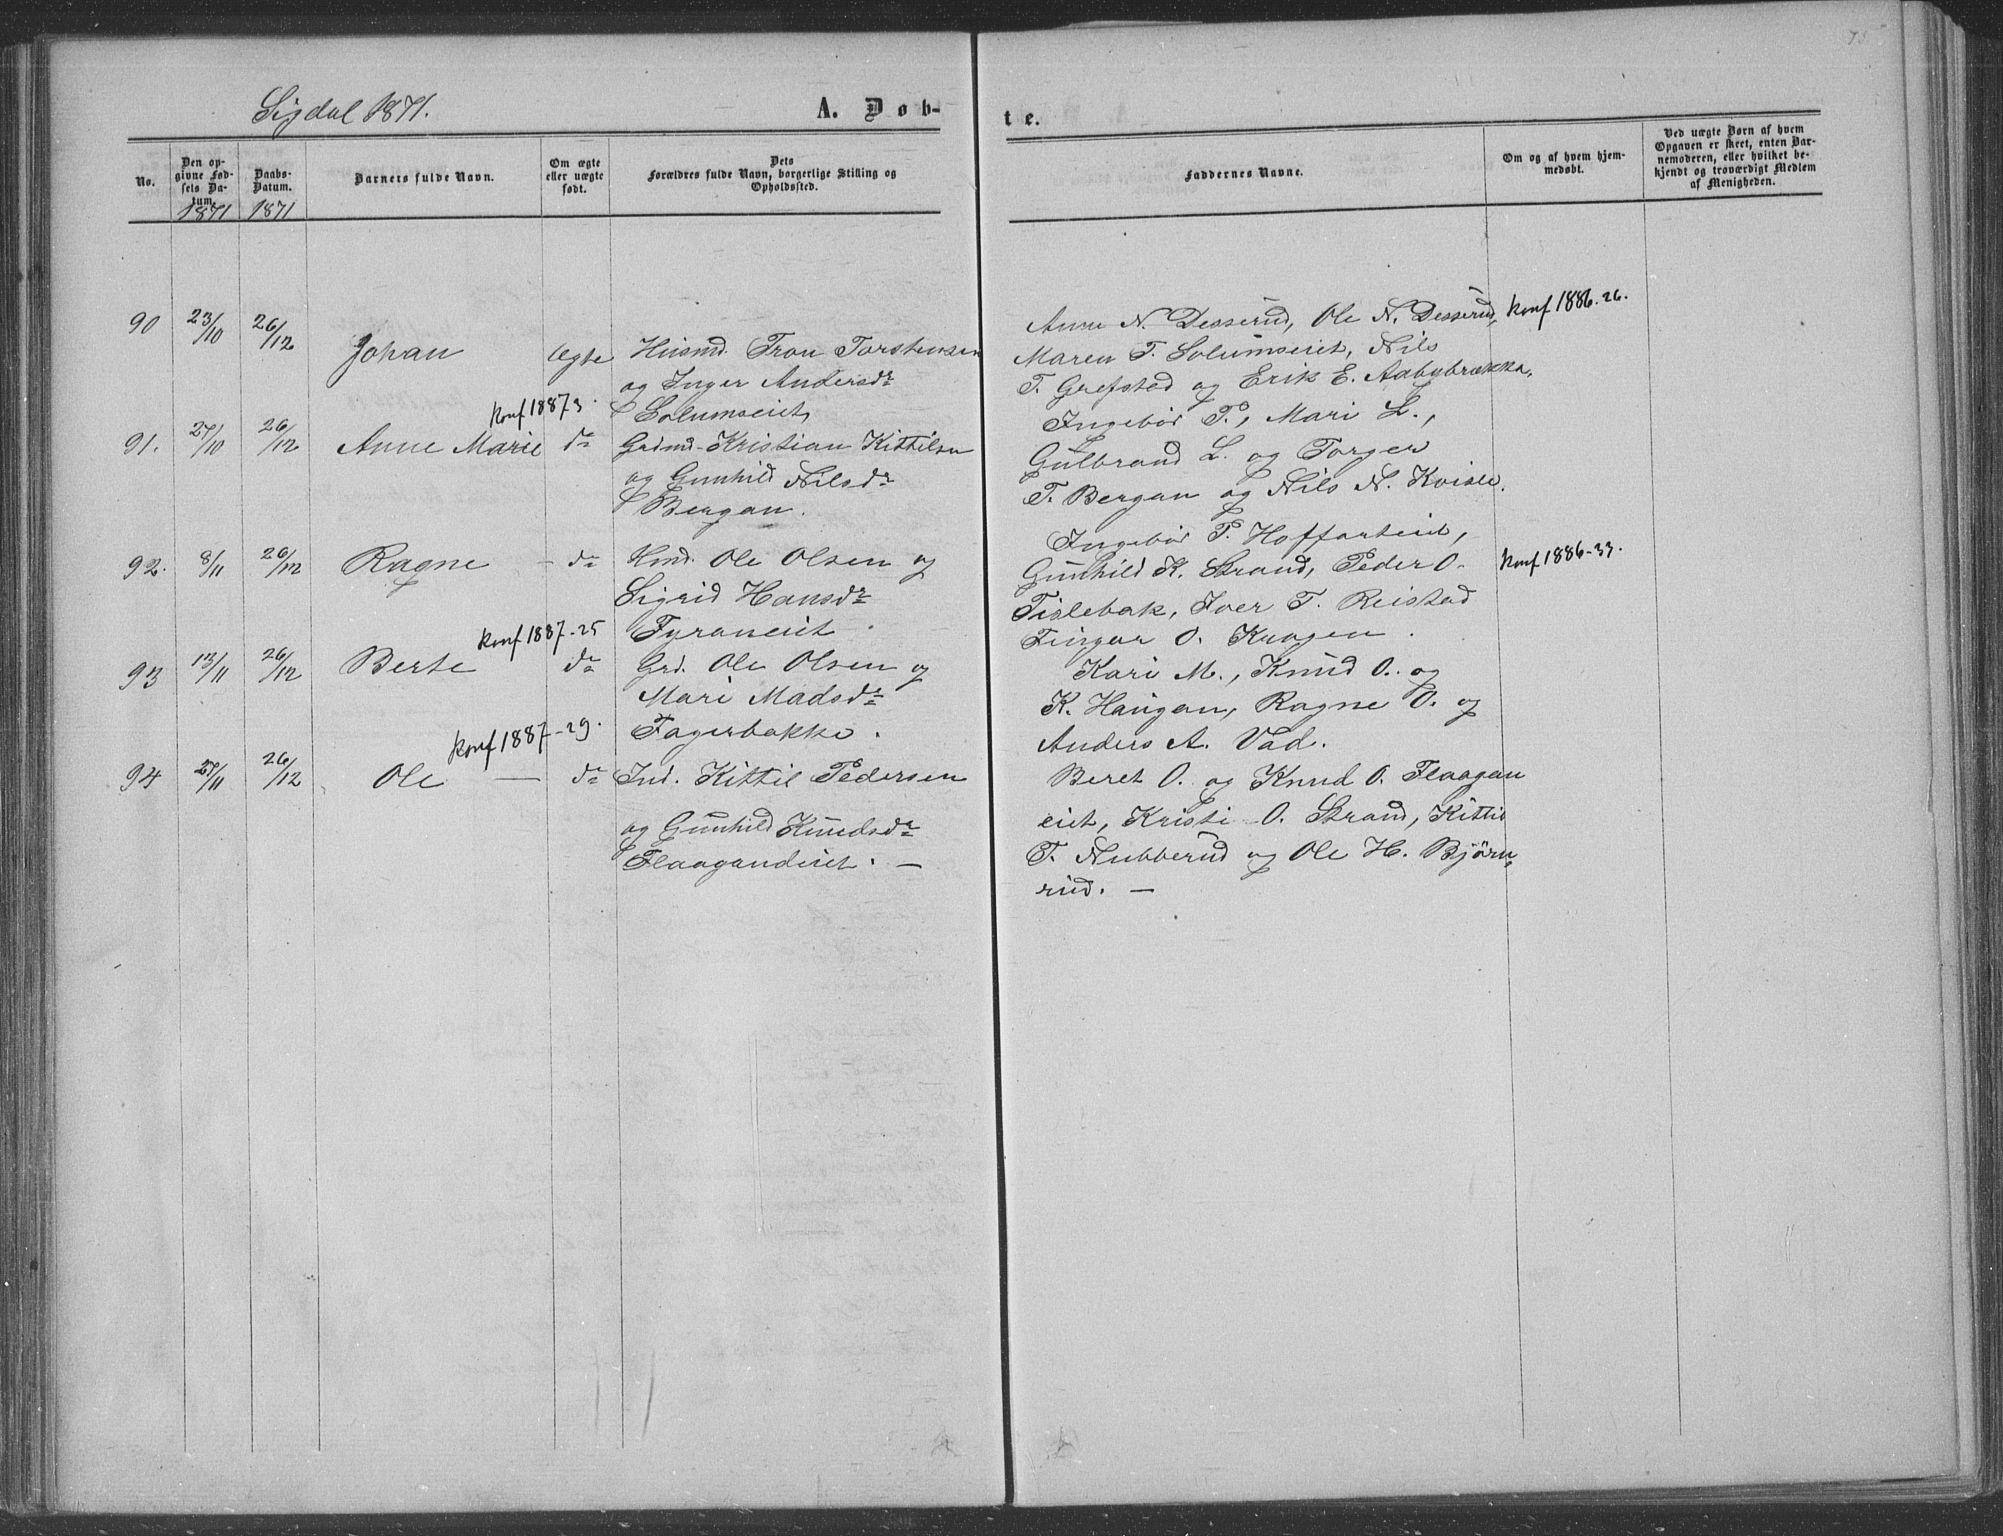 75
Sigdal 1871.
A. Døb-
te.
No.
Den op-
givne Fød-
sels Da-
tum.
1871
Daabs-
Datum.
1871
Barnets fulde Navn.
Om ægte
eller uægte
født.
Dets
Forældres fulde Navn, borgerlige Stilling og
Opholdssted.
Faddernes Navne.
Om og af hvem hjem-
medøbt.
Ved uægte Børn af hvem
Opgaven er skeet, enten Bar-
nemoderen, eller hvilket be-
kjendt og troværdigt Medlem
af Menigheden.
90 23/10 26/12 Johan Ægte Husmd. Tron Torstensen
og Inger Andersdr
Solumseiet
Anne N. Desserud, Ole N. Desserud,
Maren T. Solumseiet, Nils
T. Grefstad og Erik E. Aabybrækka.
konf 1886-26.
konf 1887 3.
91. 27/10 26/12 Anne Marie do Grdmd. Kristian Kittilsen
og Gunhild Nilsdr
Bergan.
Ingebor T., Mari L.,
Gulbrand L. og Torger
T. Bergan og Nils N. Kvisle.
92. 8/11 26/12 Ragne - do Hmd. Ole Olsen og
Sigrid Hansdr
Fyraneiet.
Ingebor P. Hoffarteiet,
Gunhild K. Strand, Peder O.
Tislebak, Iver T. Reistad
Fingar O. Kragen.
konf 1886-33.
konf 1887-25
93 13/11 26/12 Berte do Grd. Ole Olsen og
Mari Madsdr
Fagerbakke.
Kari M., Knud O. og
K. Haugan, Ragne O. og
Anders A. Vad.
konf 1887-29.
94 27/11 26/12 Ole — do Ind. Kittil Pedersen
og Gunhild Knudsdr
Flaagandeiet. —
Beret O. og Knud O. Flaagan
eiet, Kristi O. Strand, Kittil
T. Nubberud og Ole H. Bjørn
rud. —